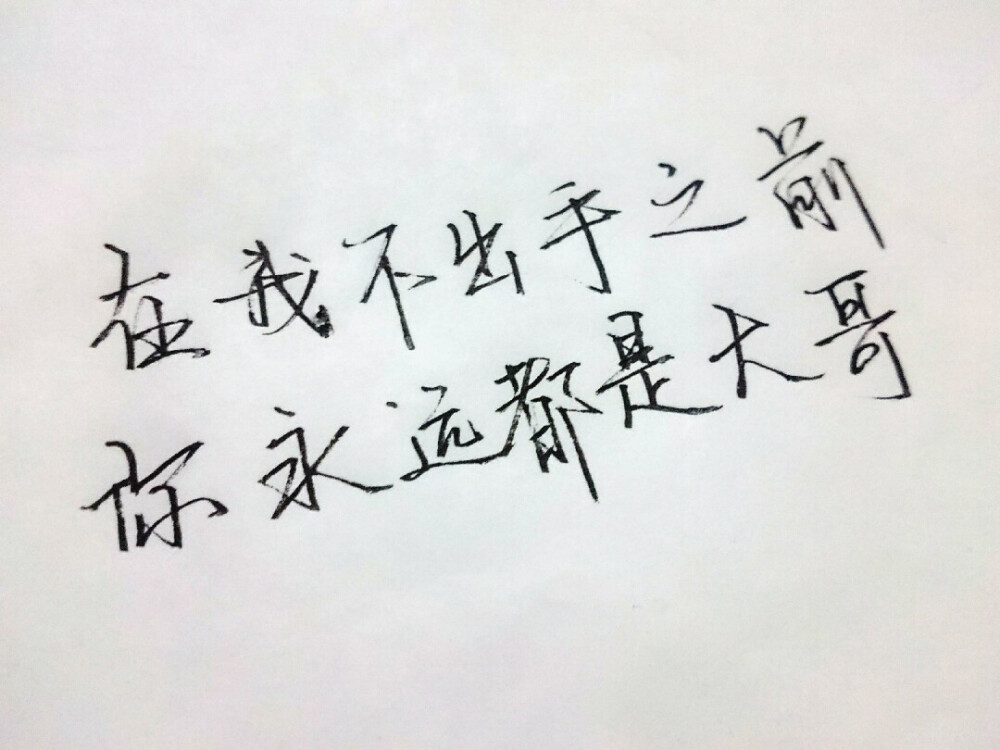 在我不出手之前
你永远都是大哥